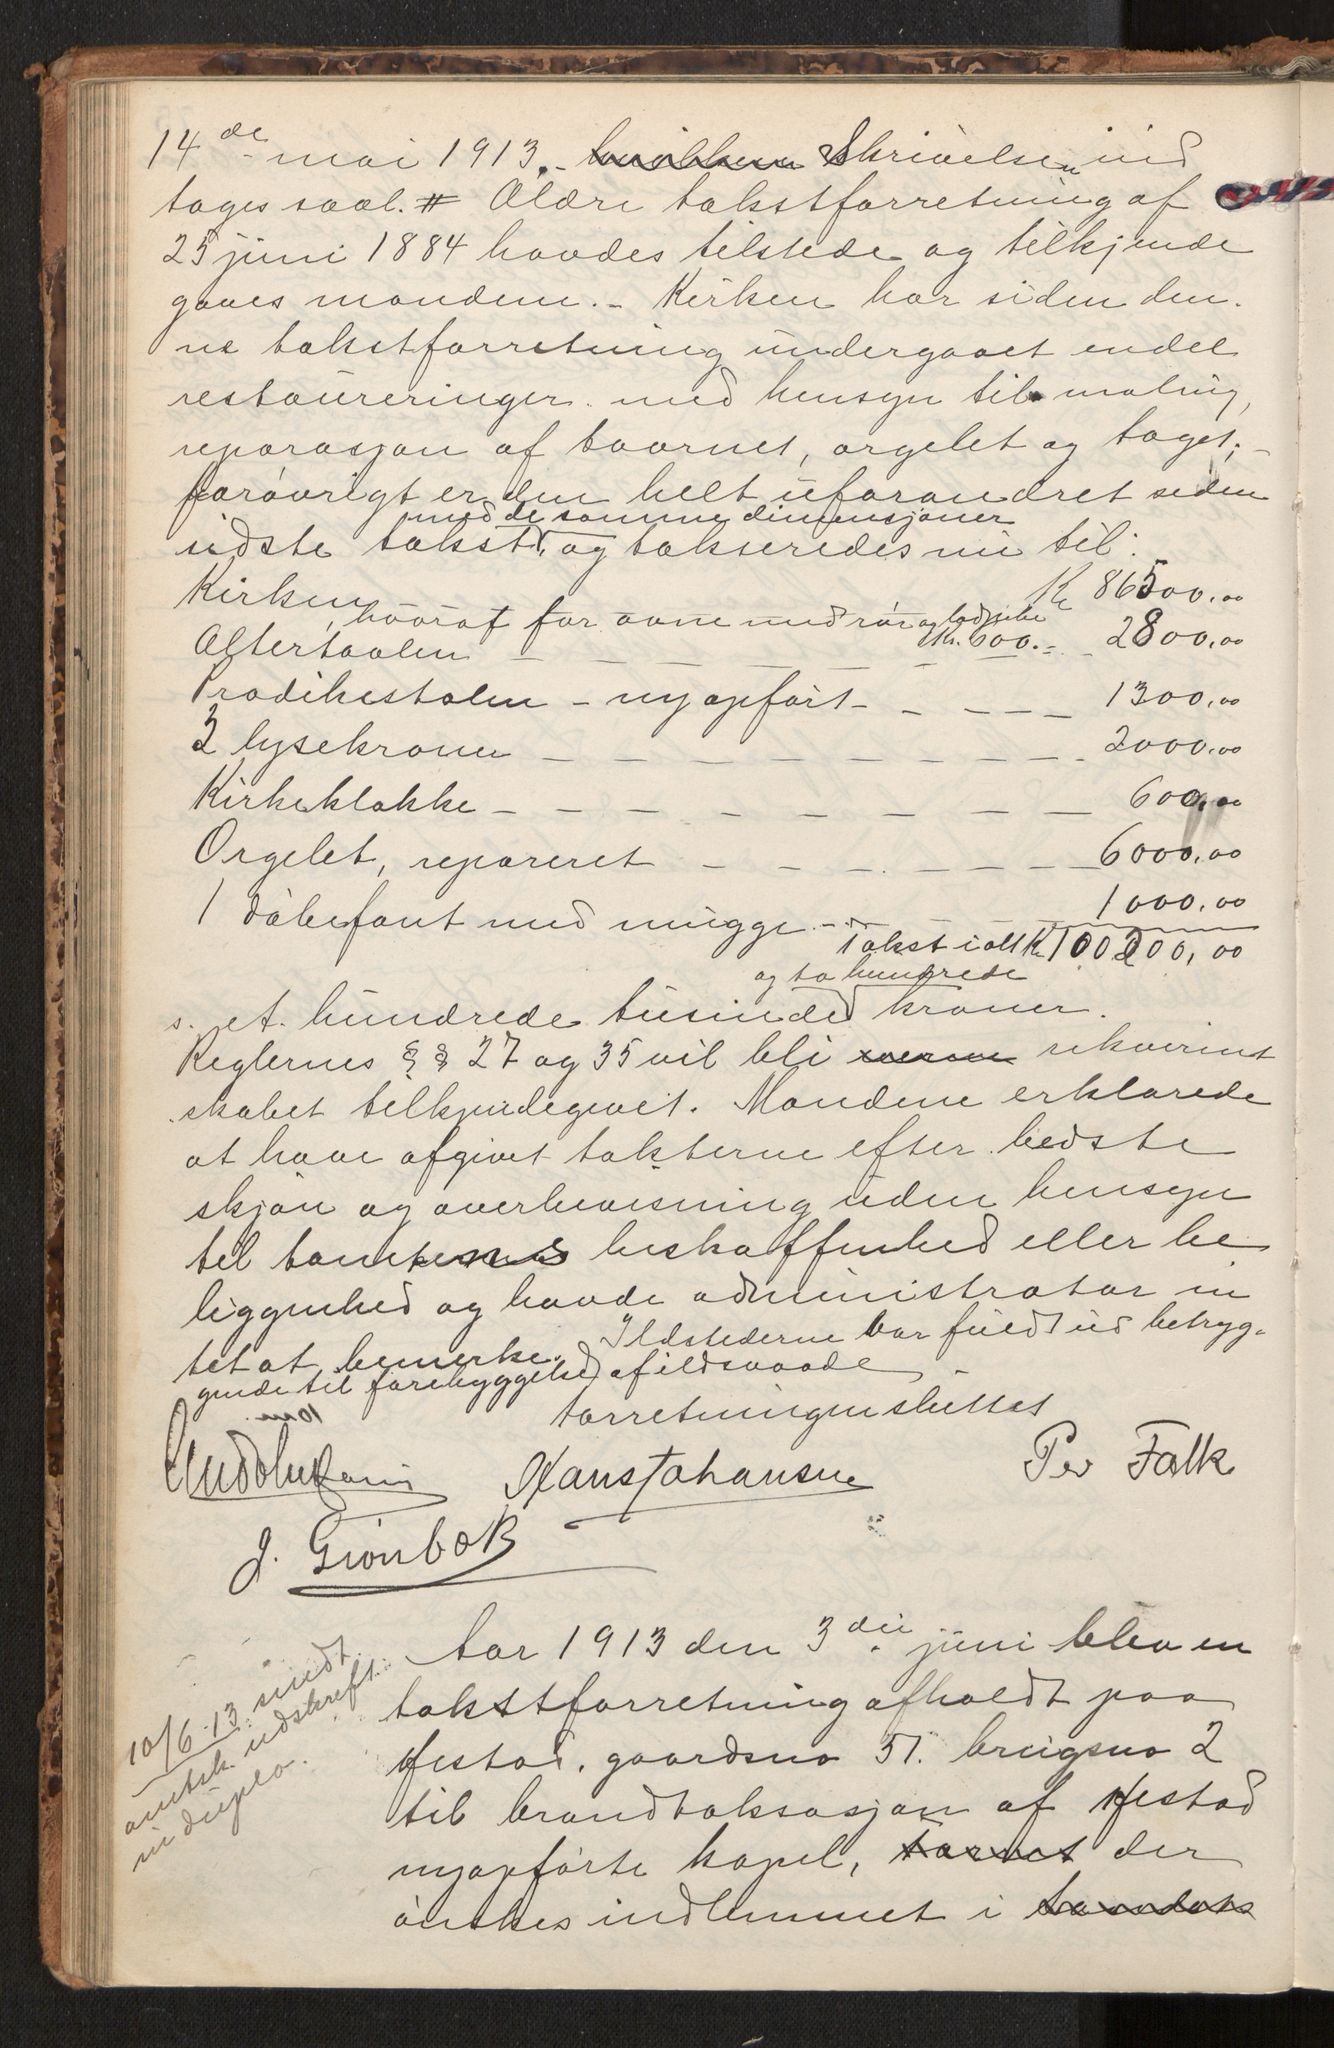 14de mai 1913. ~~hvilken~~ Skrivelsen ind
tages saal. # Ældre takstforretning af
25 juni 1884 havdes tilstede og tilkjende
gaves mændene. – Kirken har siden den-
ne takstforretning undergaaet endel
restaureringer med hensyn til maling,
reparasjon af taarnet, orgelet og taget; –
forøvrigt er den helt uforandret siden
med de samme dimensjoner
sidste takst, og takseredes nu til:
Kirken Kr 86500,00
hvoraf for ovne med rør og
Kr. 600.-
Altertavlen — — — — 2800,00
Prædikestolen – ny opført – — — — 1300,00
3 lysekroner — — — — 2000,00
Kirkeklokke — — — — 600,00
Orgelet, repareret — — — — 6000,00
1 døbefont med mugge — — — 1000,00
Takst i alt Kr 100200,00
og to hundrede
s. et hundrede tusinde kroner.
Reglernes § § 27 og 35 vil bli rekvirent
skabet tilkjendegivet. Mændene erklærede
at have afgivet taksterne efter bedste
skjøn og overbevisning uden hensyn
til tomtens beskaffenhed eller be
liggenhed og havde administrator in
tet at bemerke. Ildstederne var fuldt ud betryg-
gende til forebyggelse af ildsvaade
Forretningen sluttet
Hans Johansen Per Falk
J. Grønbæk
Aar 1913 den 3die juni blev en
takstforretning afholdt paa
Øfstad, gaardsno 51. brugsno 2
til brandtaksasjon af Øfstad
nyopførte kapel, der
ønskes indlemmet i
10/6-13 sendt
amtsk. udskrift
in duplo.